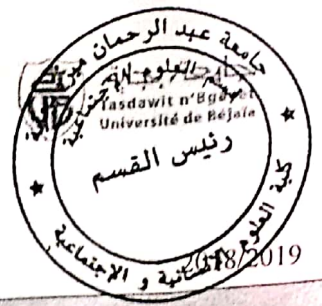 جامعة عبد الرحمان ميرة
قسم العلوم الاجتماعية
Tasdawit n'Bgayet
Université de Béjaïa
رئيس القسم
كلية العلوم الإنسانية و الإجتماعية
18/2019